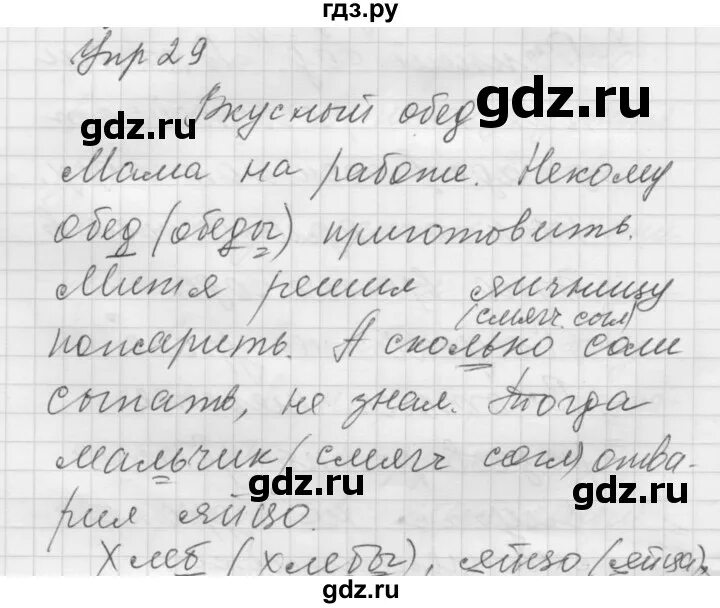 гдз.ру
Упр 29
Вкусный обед
gdz.ru
gdz.ru
Мама на работе. Некому
обед (обеды) приготовить.
gdz.ru
gdz.ru
Митя решил яичницу
(смягч. согл)
пожарить. А сколько соли
gdz.ru
gdz.ru
сыпать, не знал. Тогда
мальчик (смягч согл) отва-
gdz.ru
gdz.ru
рил яйцо.
Хлеб (хлебы), яйцо (яйца),
gdz.ru